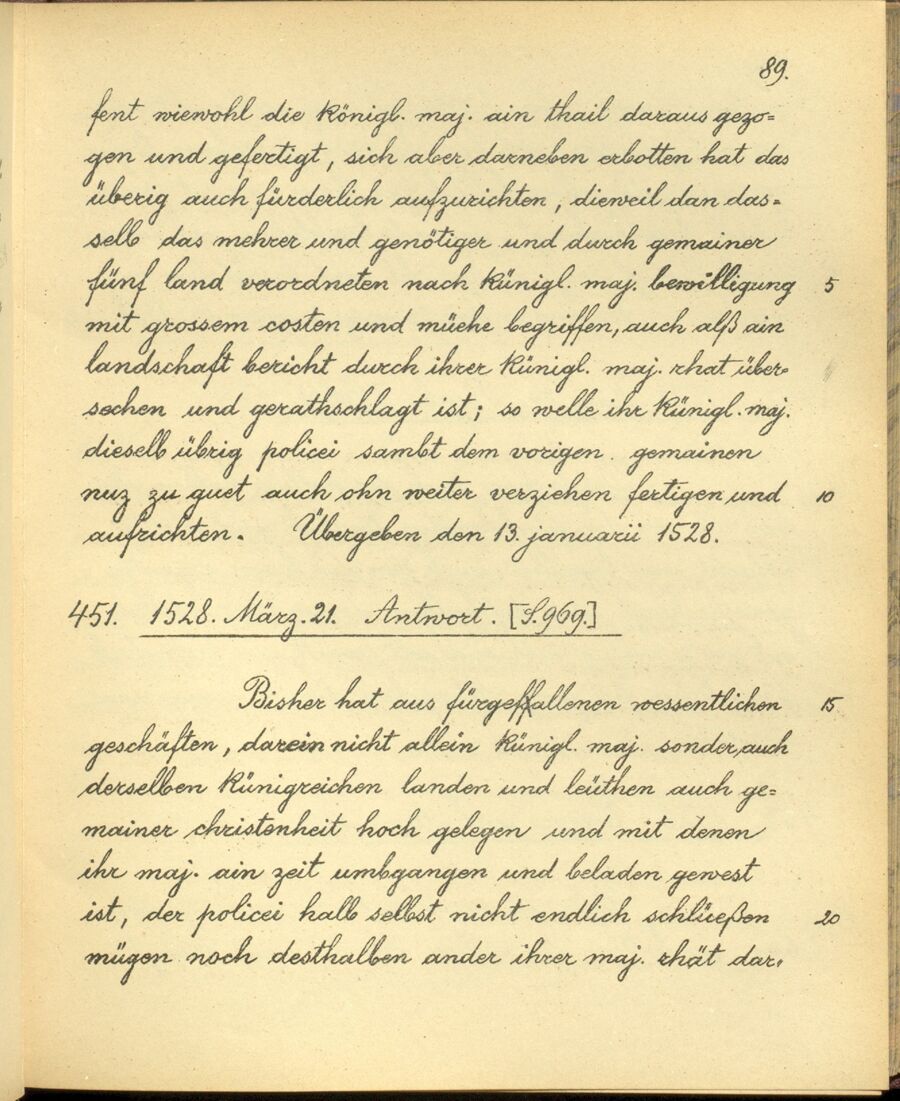 89.
fent wiewohl die königl. maj. ain thail daraus gezo=
gen und gefertigt, sich aber darneben erbotten hat das
überig auch fürderlich aufzurichten, dieweil dan das=
selb das mehrer und genötiger und durch gemainer
fünf land verordneten nach künigl. maj. bewilligung 5
mit grossem costen und müehe begriffen, auch alß ain
landschaft bericht durch ihrer künigl. maj. rhat über=
sechen und gerathschlagt ist; so welle ihr künigl. maj.
dieselb übrig policei sambt dem vorigen gemainen
nuz zu guet auch ohn weiter verziehen fertigen und 10
aufrichten. Übergeben den 13. januarii 1528.
451. 1528. März. 21. Antwort. [S. 969.]
Bisher hat aus fürgefallenen wessentlichen 15
geschäften, darein nicht allein künigl. maj. sonder auch
derselben künigreichen landen und leüthen auch ge=
mainer christenheit hoch gelegen und mit denen
ihr maj. ain zeit umbgangen und beladen gewest
ist, der policei halb selbst nicht endlich schlüeßen 20
mügen noch desthalben ander ihrer maj. rhät dar=